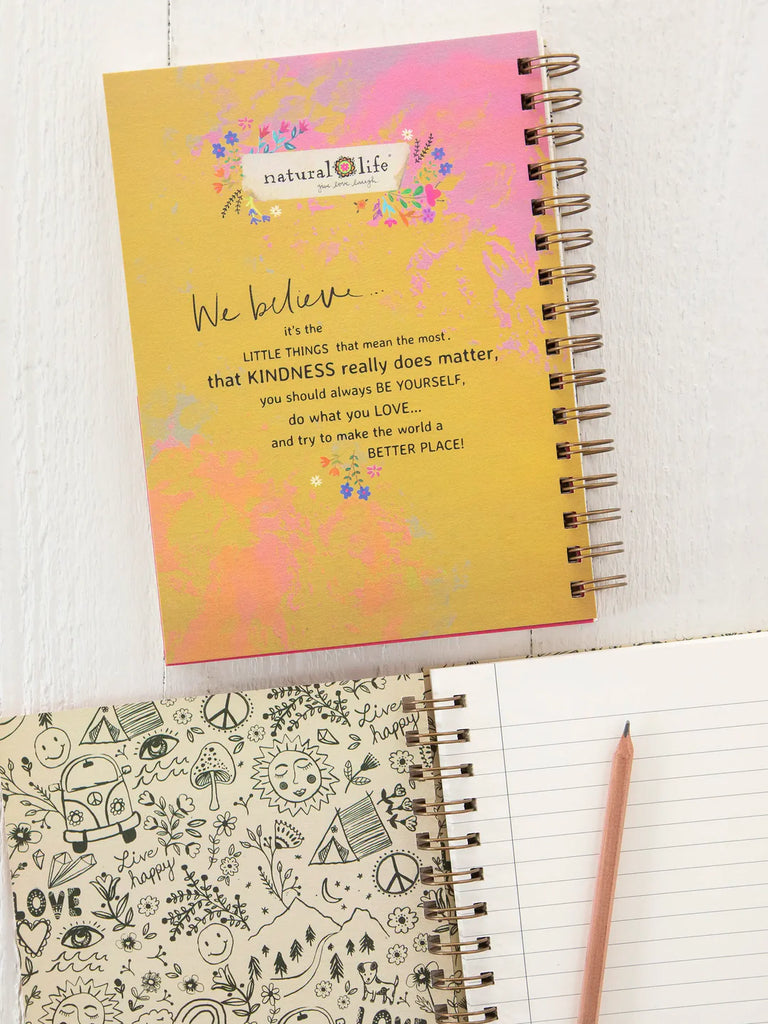 natural life®
give love laugh
We believe...
it's the
LITTLE THINGS that mean the most.
that KINDNESS really does matter,
you should always BE YOURSELF,
do what you LOVE...
and try to make the world a
BETTER PLACE!
Live happy
Live happy
LOVE
LOVE